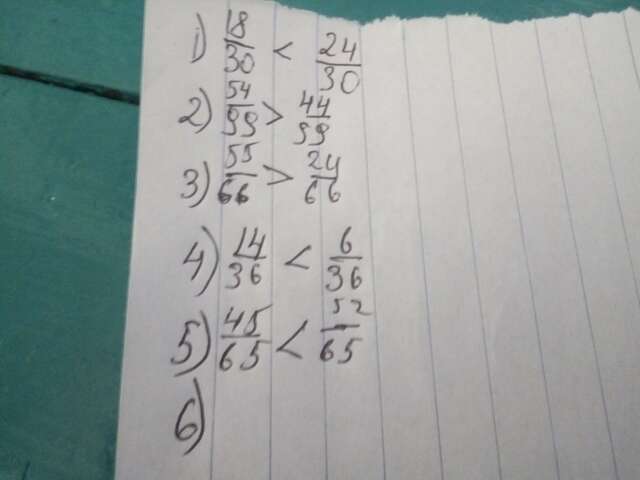 1) 18/30 < 24/30
2) 54/99 > 44/99
3) 55/66 > 24/66
4) 14/36 < 6/36
5) 45/65 < 52/65
6)